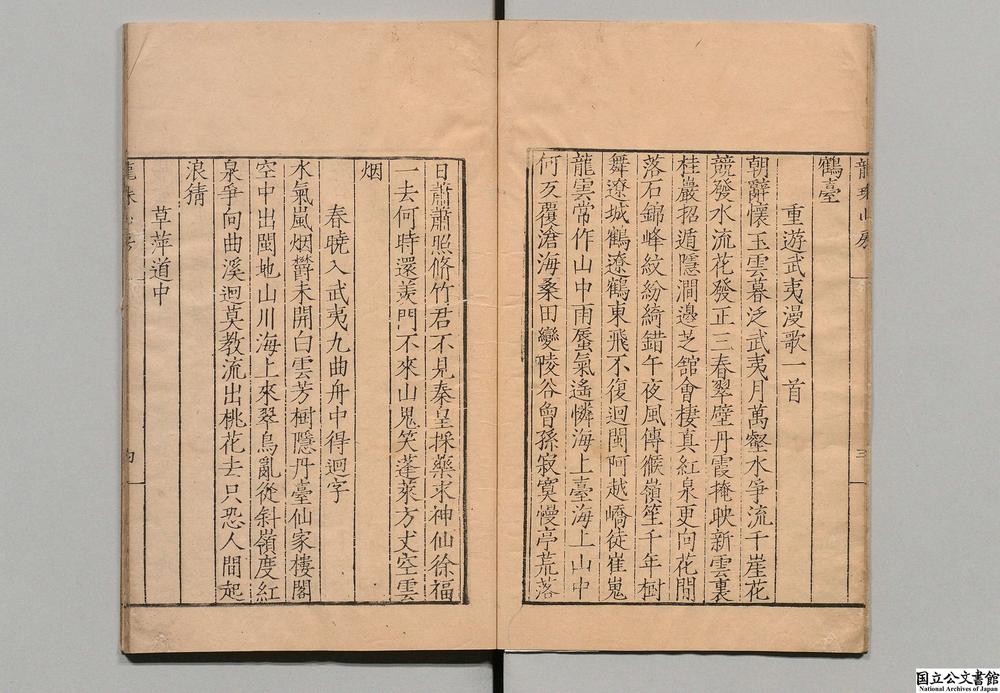 鶴臺
重遊武夷漫歌一首
朝辭懷玉雲暮泛武夷月萬壑水爭流千崖花
競發水流花發正三春翠壁丹霞掩映新雲裏
桂巖招遁隱澗邊芝舘會棲真紅泉更向花間
落石錦峰紋紛綺錯午夜風傳緱嶺笙千年樹
舞遼城鶴遼鶴東飛不復迴閩阿越嶠徒崔嵬
龍雲常作山中雨蜃氣遙憐海上臺海上山中
何歹覆滄海桑田變陵谷曾孫寂寞幔亭荒落
日蕭蕭照脩竹君不見秦皇採藥求神仙徐福
一去何時還羨門不來山鬼笑蓬萊方丈空雲
烟
春曉入武夷九曲舟中得迴字
水氣嵐烟欝未開白雲芳樹隱丹臺仙家樓閣
空中出閩地山川海上來翠鳥亂從斜嶺度紅
泉爭向曲溪迴莫教流出桃花去只恐人間起
浪猜
草萍道中
三
四
国立公文書館
National Archives of Japan